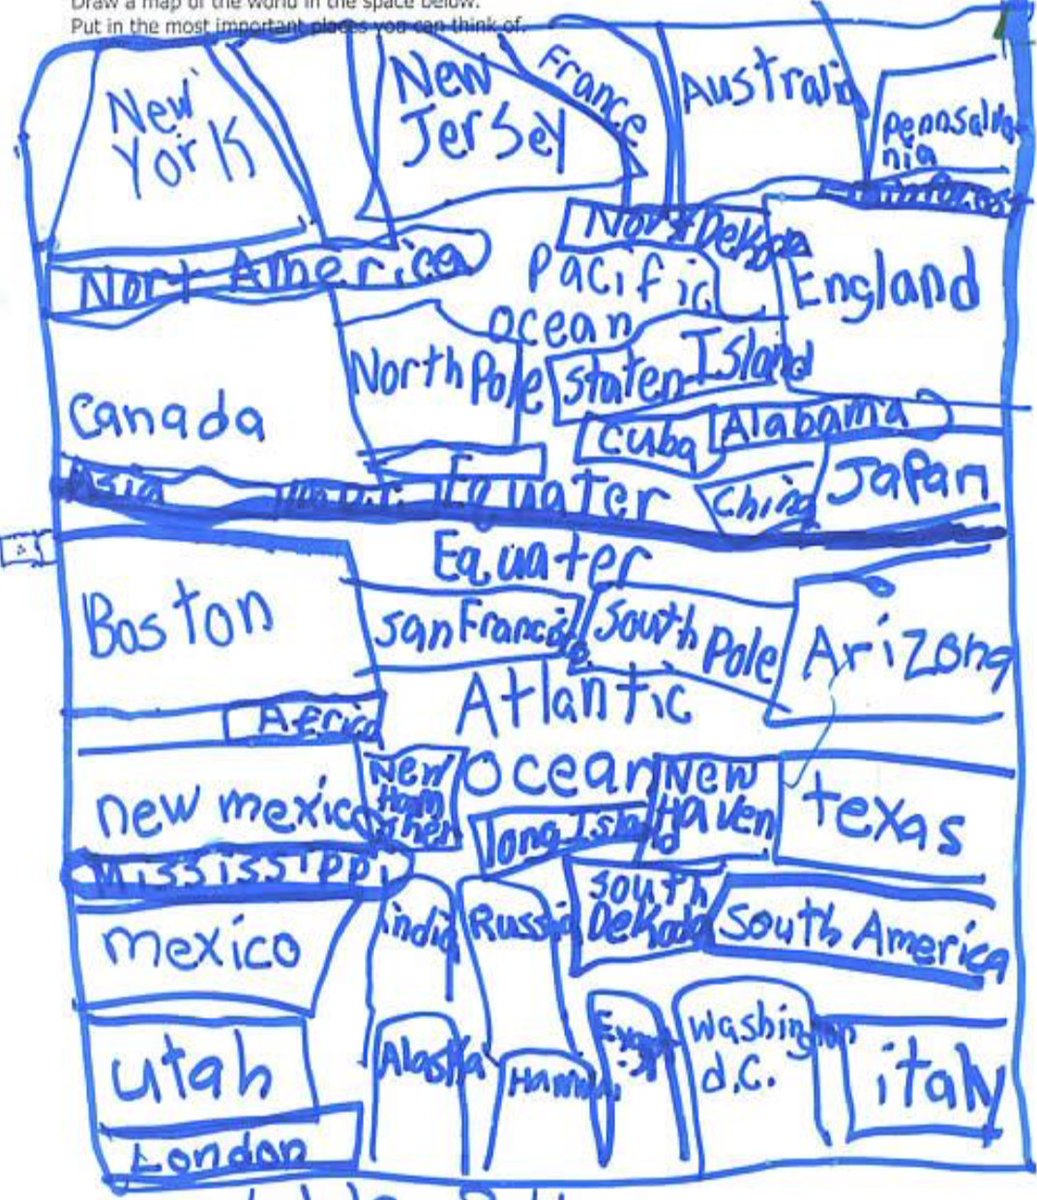 Draw a map of the world in the space below.
Put in the most important places you can think of.
New
York
New
Jersey
France
Australia
Pennsalva-
nia
Nort America
Nort Dekoda
Pacific
ocean
England
Canada
North Pole
Staten Island
Cuba
Alabama
Asia
Equater
China
Japan
Equater
Boston
San Francisi
South
Pole
Arizona
Africa
Atlantic
ocean
new mexico
New
Ham
sher
long Islad
New
Haven
texas
Mississippi
mexico
india
Russia
South
Dekoda
South America
utah
Alaska
Washington
d.c.
italy
London